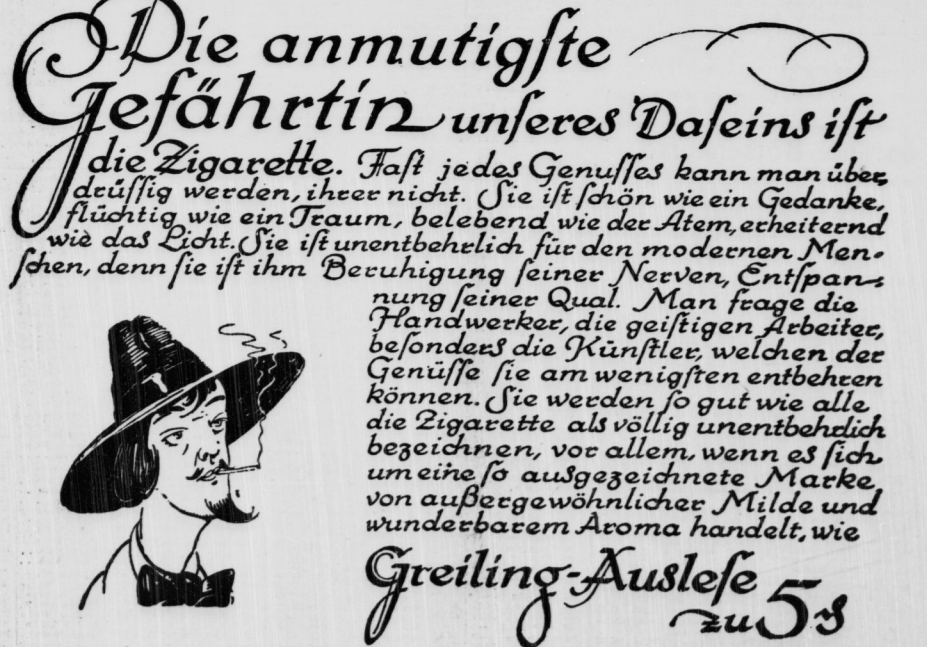 Die anmutigſte
Gefährtin unſeres Daſeins iſt
die Zigarette. Faſt jedes Genuſſes kann man über-
drüſſig werden, ihrer nicht. Sie iſt ſchön wie ein Gedanke,
flüchtig wie ein Traum, belebend wie der Atem, erheiternd
wie das Licht. Sie iſt unentbehrlich für den modernen Men-
ſchen, denn ſie iſt ihm Beruhigung ſeiner Nerven, Entſpan-
nung ſeiner Qual. Man frage die
Handwerker, die geiſtigen Arbeiter,
beſonders die Künſtler, welchen der
Genüſſe ſie am wenigſten entbehren
können. Sie werden ſo gut wie alle
die Zigarette als völlig unentbehrlich
bezeichnen, vor allem, wenn es ſich
um eine ſo ausgezeichnete Marke
von außergewöhnlicher Milde und
wunderbarem Aroma handelt, wie
Greiling-Ausleſe
zu 5₰